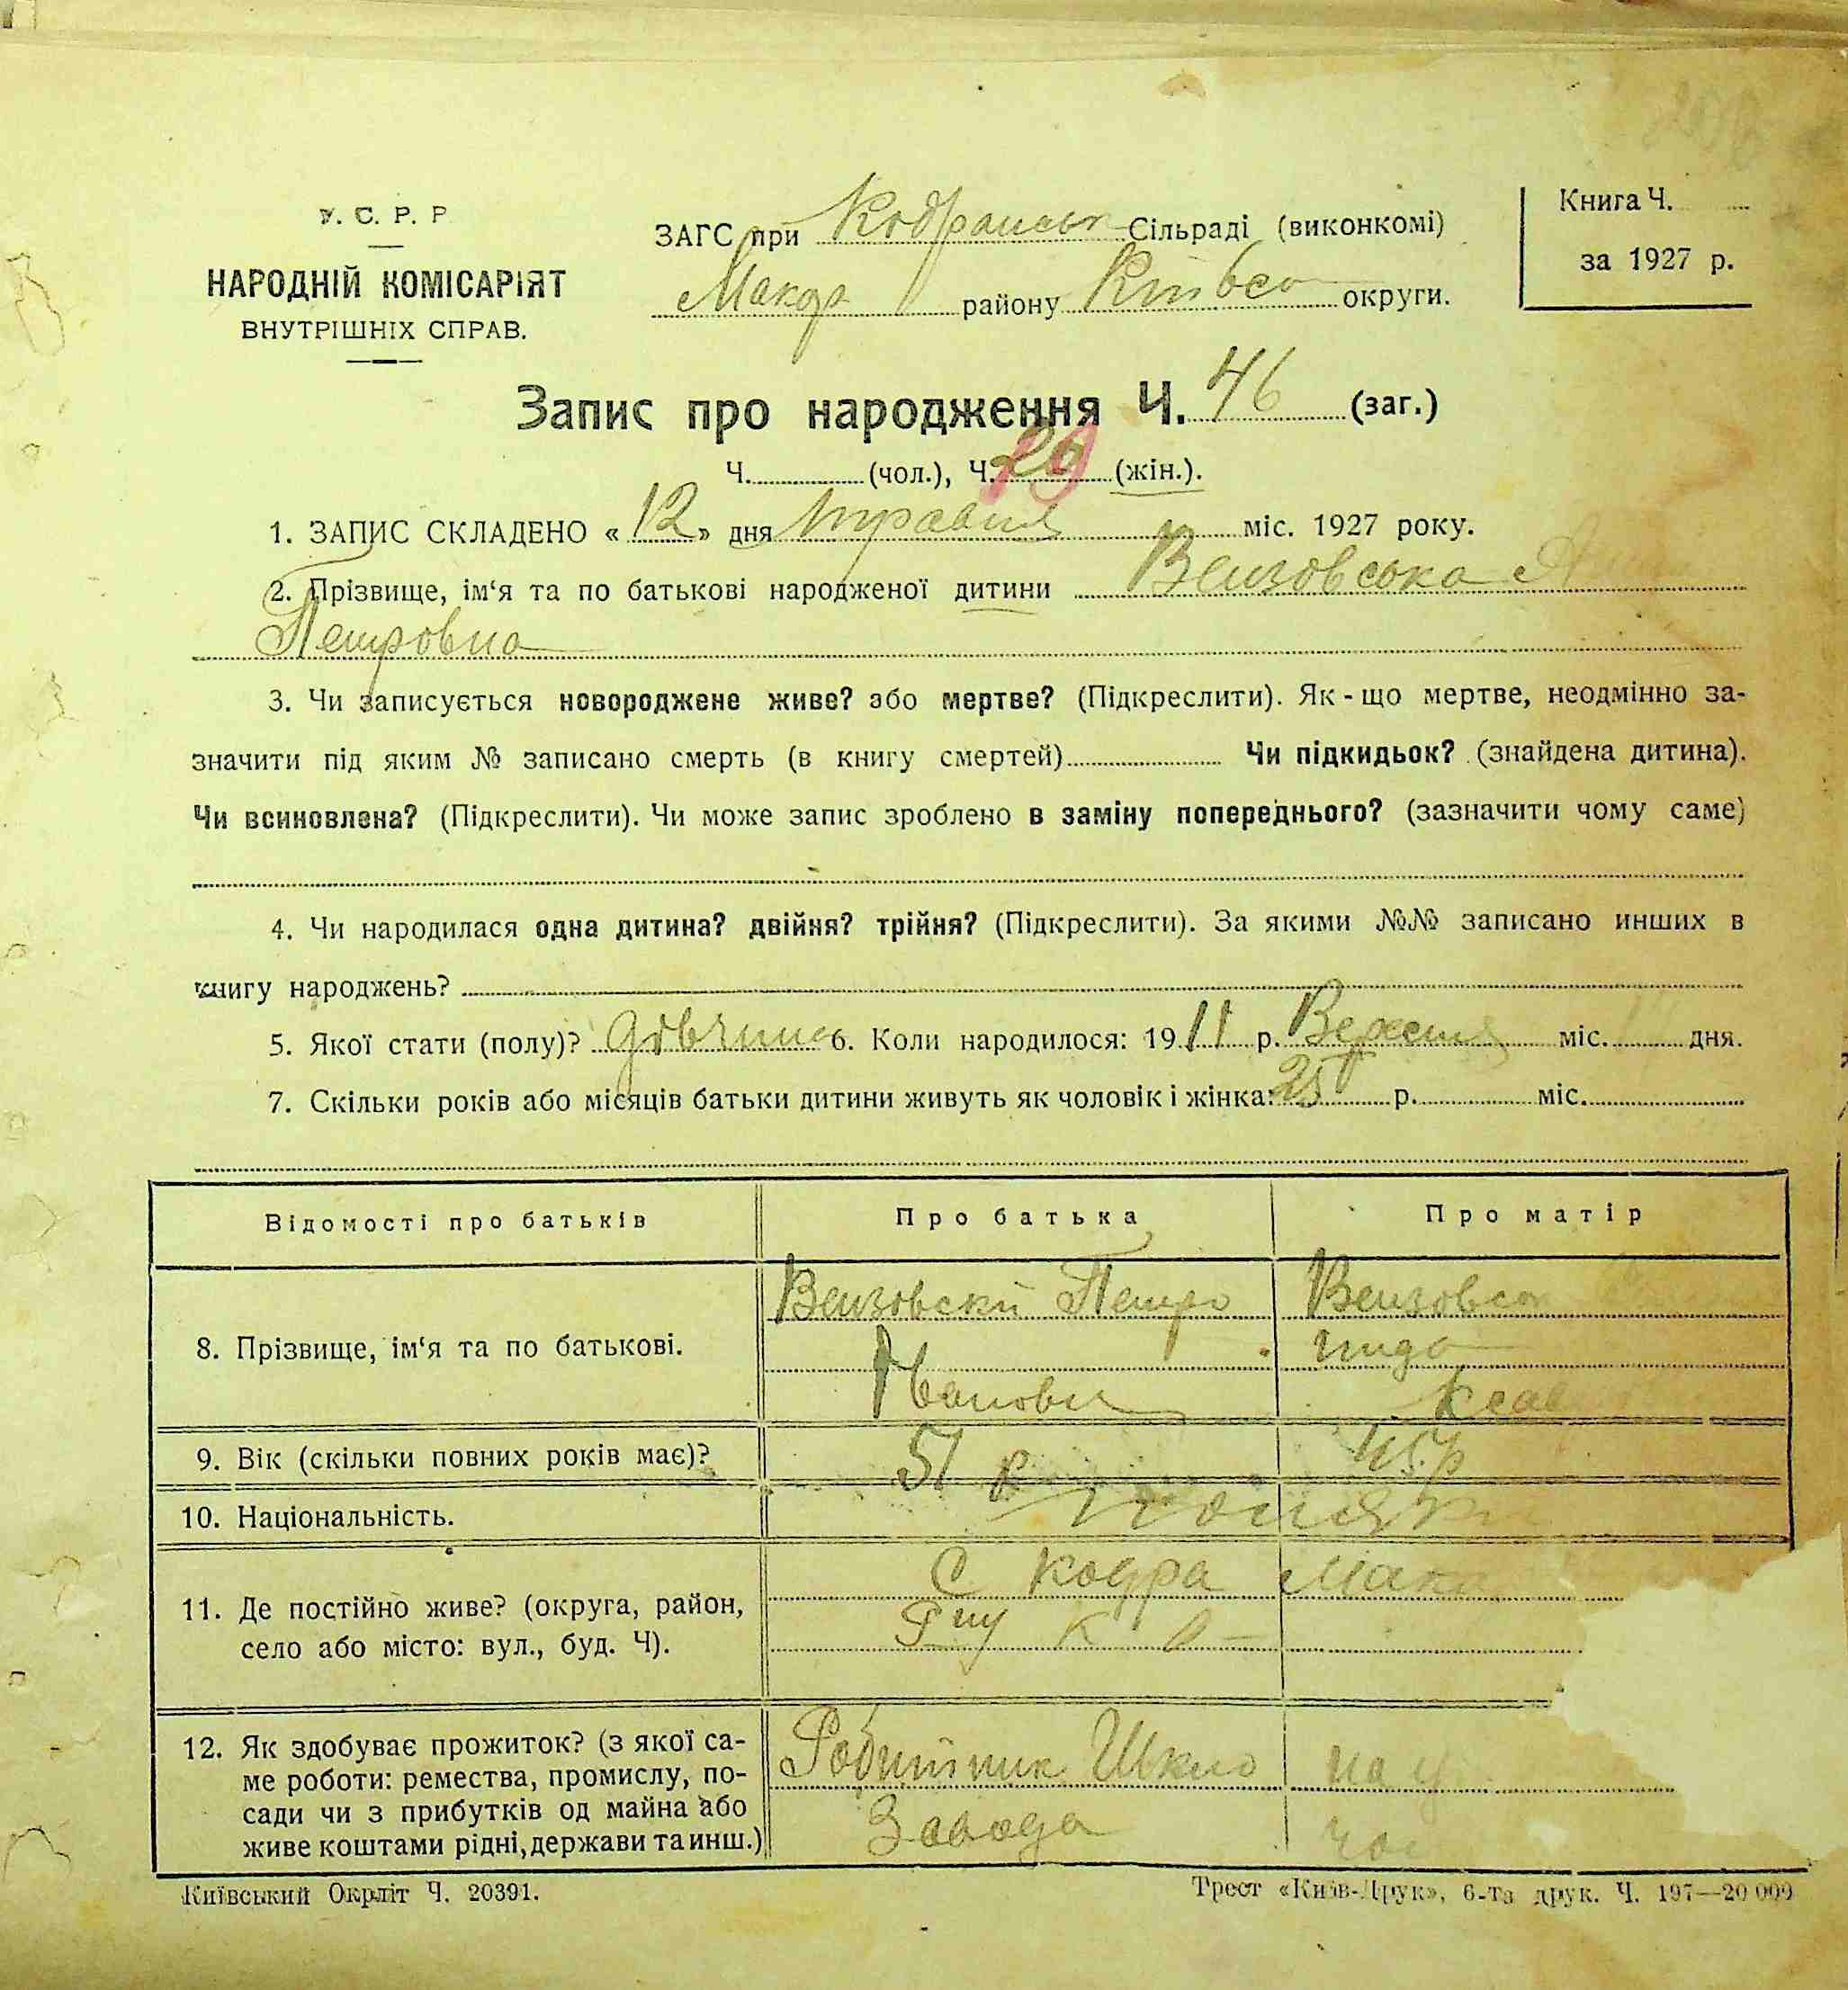 У. С. Р. Р
НАРОДНІЙ КОМІСАРІЯТ
ВНУТРІШНІХ СПРАВ.
ЗАГС при Кодранськ Сільраді (виконкомі)
Макар району Київсь округи.
Книга Ч.
за 1927 р.
Запис про народження Ч. 46 (заг.)
Ч. (чол.), Ч. 19 (жін.).
1. ЗАПИС СКЛАДЕНО « 12 » дня травня міс. 1927 року.
2. Прізвище, ім‘я та по батькові народженої дитини Вензовська
Петровна
3. Чи записується новороджене живе? або мертве? (Підкреслити). Як-що мертве, неодмінно за-
значити під яким № записано смерть (в книгу смертей) Чи підкидьок? (знайдена дитина).
Чи всиновлена? (Підкреслити). Чи може запис зроблено в заміну попереднього? (зазначити чому саме)
4. Чи народилася одна дитина? двійня? трійня? (Підкреслити). За якими №№ записано инших в
книгу народжень?
5. Якої стати (полу)? дівчина 6. Коли народилося: 1911 р. Вересня міс. дня.
7. Скільки років або місяців батьки дитини живуть як чоловік і жінка: 25 р. міс.
Відомості про батьків Про батька Про матір
8. Прізвище, ім‘я та по батькові.
Вензовскй Петро
Іванович
Вензовсь
9. Вік (скільки повних років має)? 51 р 45 р
10. Національність. поляки
11. Де постійно живе? (округа, район,
село або місто: вул., буд. Ч).
С Кодра Мака
Р ну К о
12. Як здобуває прожиток? (з якої са-
ме роботи: ремества, промислу, по-
сади чи з прибутків од майна або
живе коштами рідні, держави та инш.)
Робитник Шкло
Завода
Київський Окрліт Ч. 20391.
Трест «Київ-Друк», 6-та друк. Ч. 197—20 000